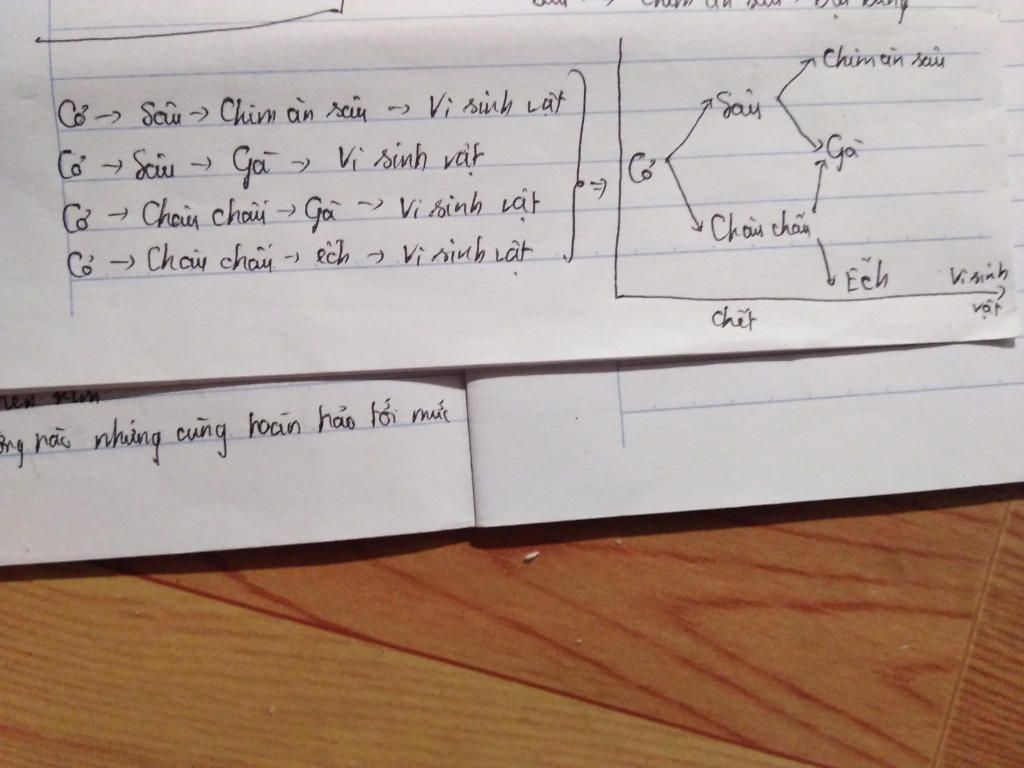 Cỏ → Sâu → Chim ăn sâu → Vi sinh vật
Cỏ → Sâu → Gà → Vi sinh vật
Cỏ → Châu chấu → Gà → Vi sinh vật
Cỏ → Châu chấu → ếch → Vi sinh vật
⇒
Chim ăn sâu
Sâu
Gà
Cỏ
Châu chấu
Ếch
Vi sinh
vật
chết
nào nhưng cũng hoàn hảo tới mức